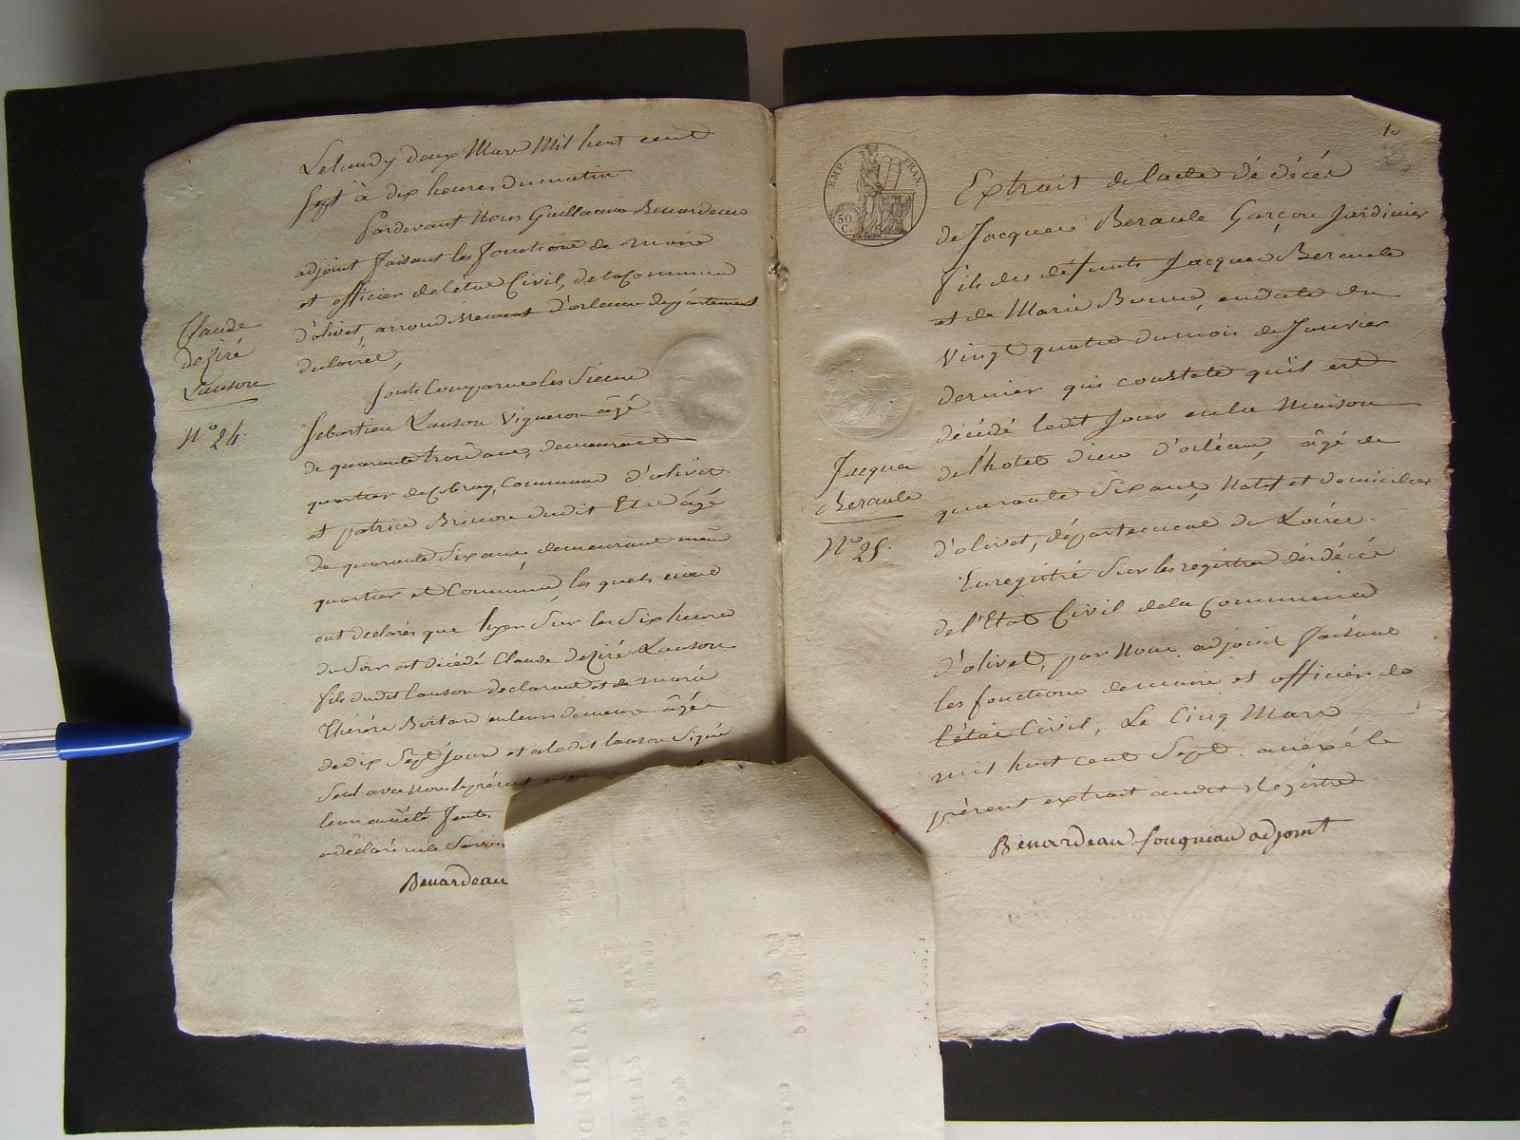 Le lundy deux Mars Mil huit cent
sept à dix heures du matin
Pardevant Nous Guillaume Benardeau
adjoint faisant les fonctions de maire
et officier de l'état Civil, de la Commune
d'olivet arrondissement d'orleans departement
du loiret,
Claude
deziré
Lanson
N° 24.
Sont Comparus les Sieurs
Sebastien Lanson Vigneron âgé
de quarante trois ans, demeurant
quartier de Commune d'olivet
et patrice dudit Etat âgé
de quarante Six ans, demeurant même
quartier et Commune, les quels nous
ont declarés que hyer Sur les Six heures
du Soir est décédé Claude deziré Lanson
fils dudit lanson declarant et de marie
Thérèse en leur demeure âgé
de dix Sept jours et a ledit lanson Signé
Seul avec nous le présent
leur
a déclaré ne le Savoir
Benardeau
EMP. FRAN.
50
C.
Extrait de lacte de décés
de Jacques Beraule Garçon Jardinier
fils des défunts Jacques Beraule
et de Marie en date du
Vingt quatre du mois de Janvier
dernier qui constate qu'il est
décédé ledit Jour en la Maison
de l'hotel dieu d'orléans, âgé de
quarante Six ans, Natif et domicilier
d'olivet, département du Loiret.
Jacques
Beraule
N° 25.
Enregistré Sur les registres des décés
de l'Etat Civil de la Commune
d'olivet, par Nous adjoint faisant
les fonctions de maire et officier de
l'état Civil, Le Cinq Mars
mil huit cent Sept. annexé le
présent extrait audit Registre
Benardeau fouqueau adjoint